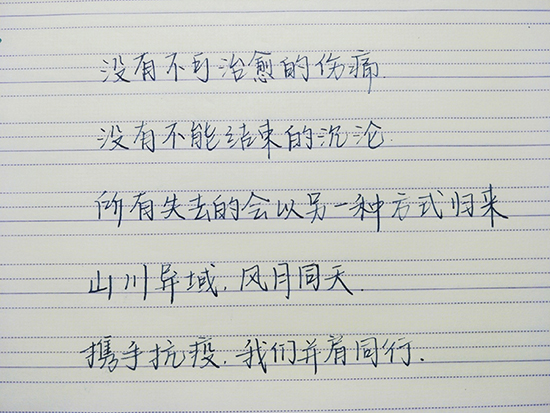 没有不可治愈的伤痛.
没有不能结束的沉沦.
所有失去的会以另一种方式归来
山川异域,风月同天.
携手抗疫.我们并肩同行.